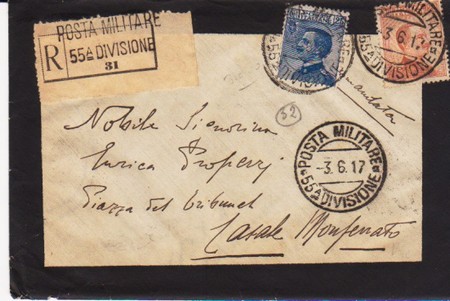 POSTA MILITARE
R 55ª DIVISIONE
31
POSTA MILITARE
-3.6.17
55ª DIVISIONE
52
Nobile Signorina
Enrica
Piazza del Tribunal
Casale Monferrato
POSTA MILITARE
-3.6.17
55ª DIVISIONE